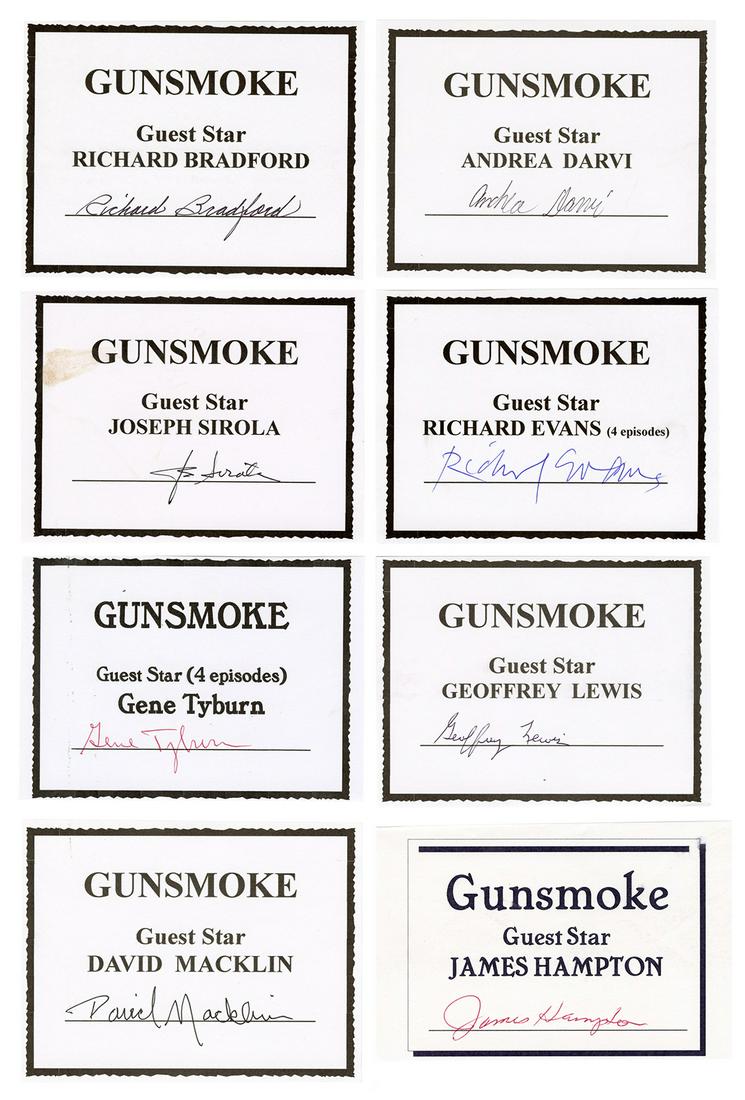 GUNSMOKE
Guest Star
RICHARD BRADFORD
Richard Bradford
GUNSMOKE
Guest Star
ANDREA DARVI
Andrea Darvi
GUNSMOKE
Guest Star
JOSEPH SIROLA
Joe Sirola
GUNSMOKE
Guest Star
RICHARD EVANS (4 episodes)
Richard Evans
GUNSMOKE
Guest Star (4 episodes)
Gene Tyburn
Gene Tyburn
GUNSMOKE
Guest Star
GEOFFREY LEWIS
Geoffrey Lewis
GUNSMOKE
Guest Star
DAVID MACKLIN
David Macklin
Gunsmoke
Guest Star
JAMES HAMPTON
James Hampton